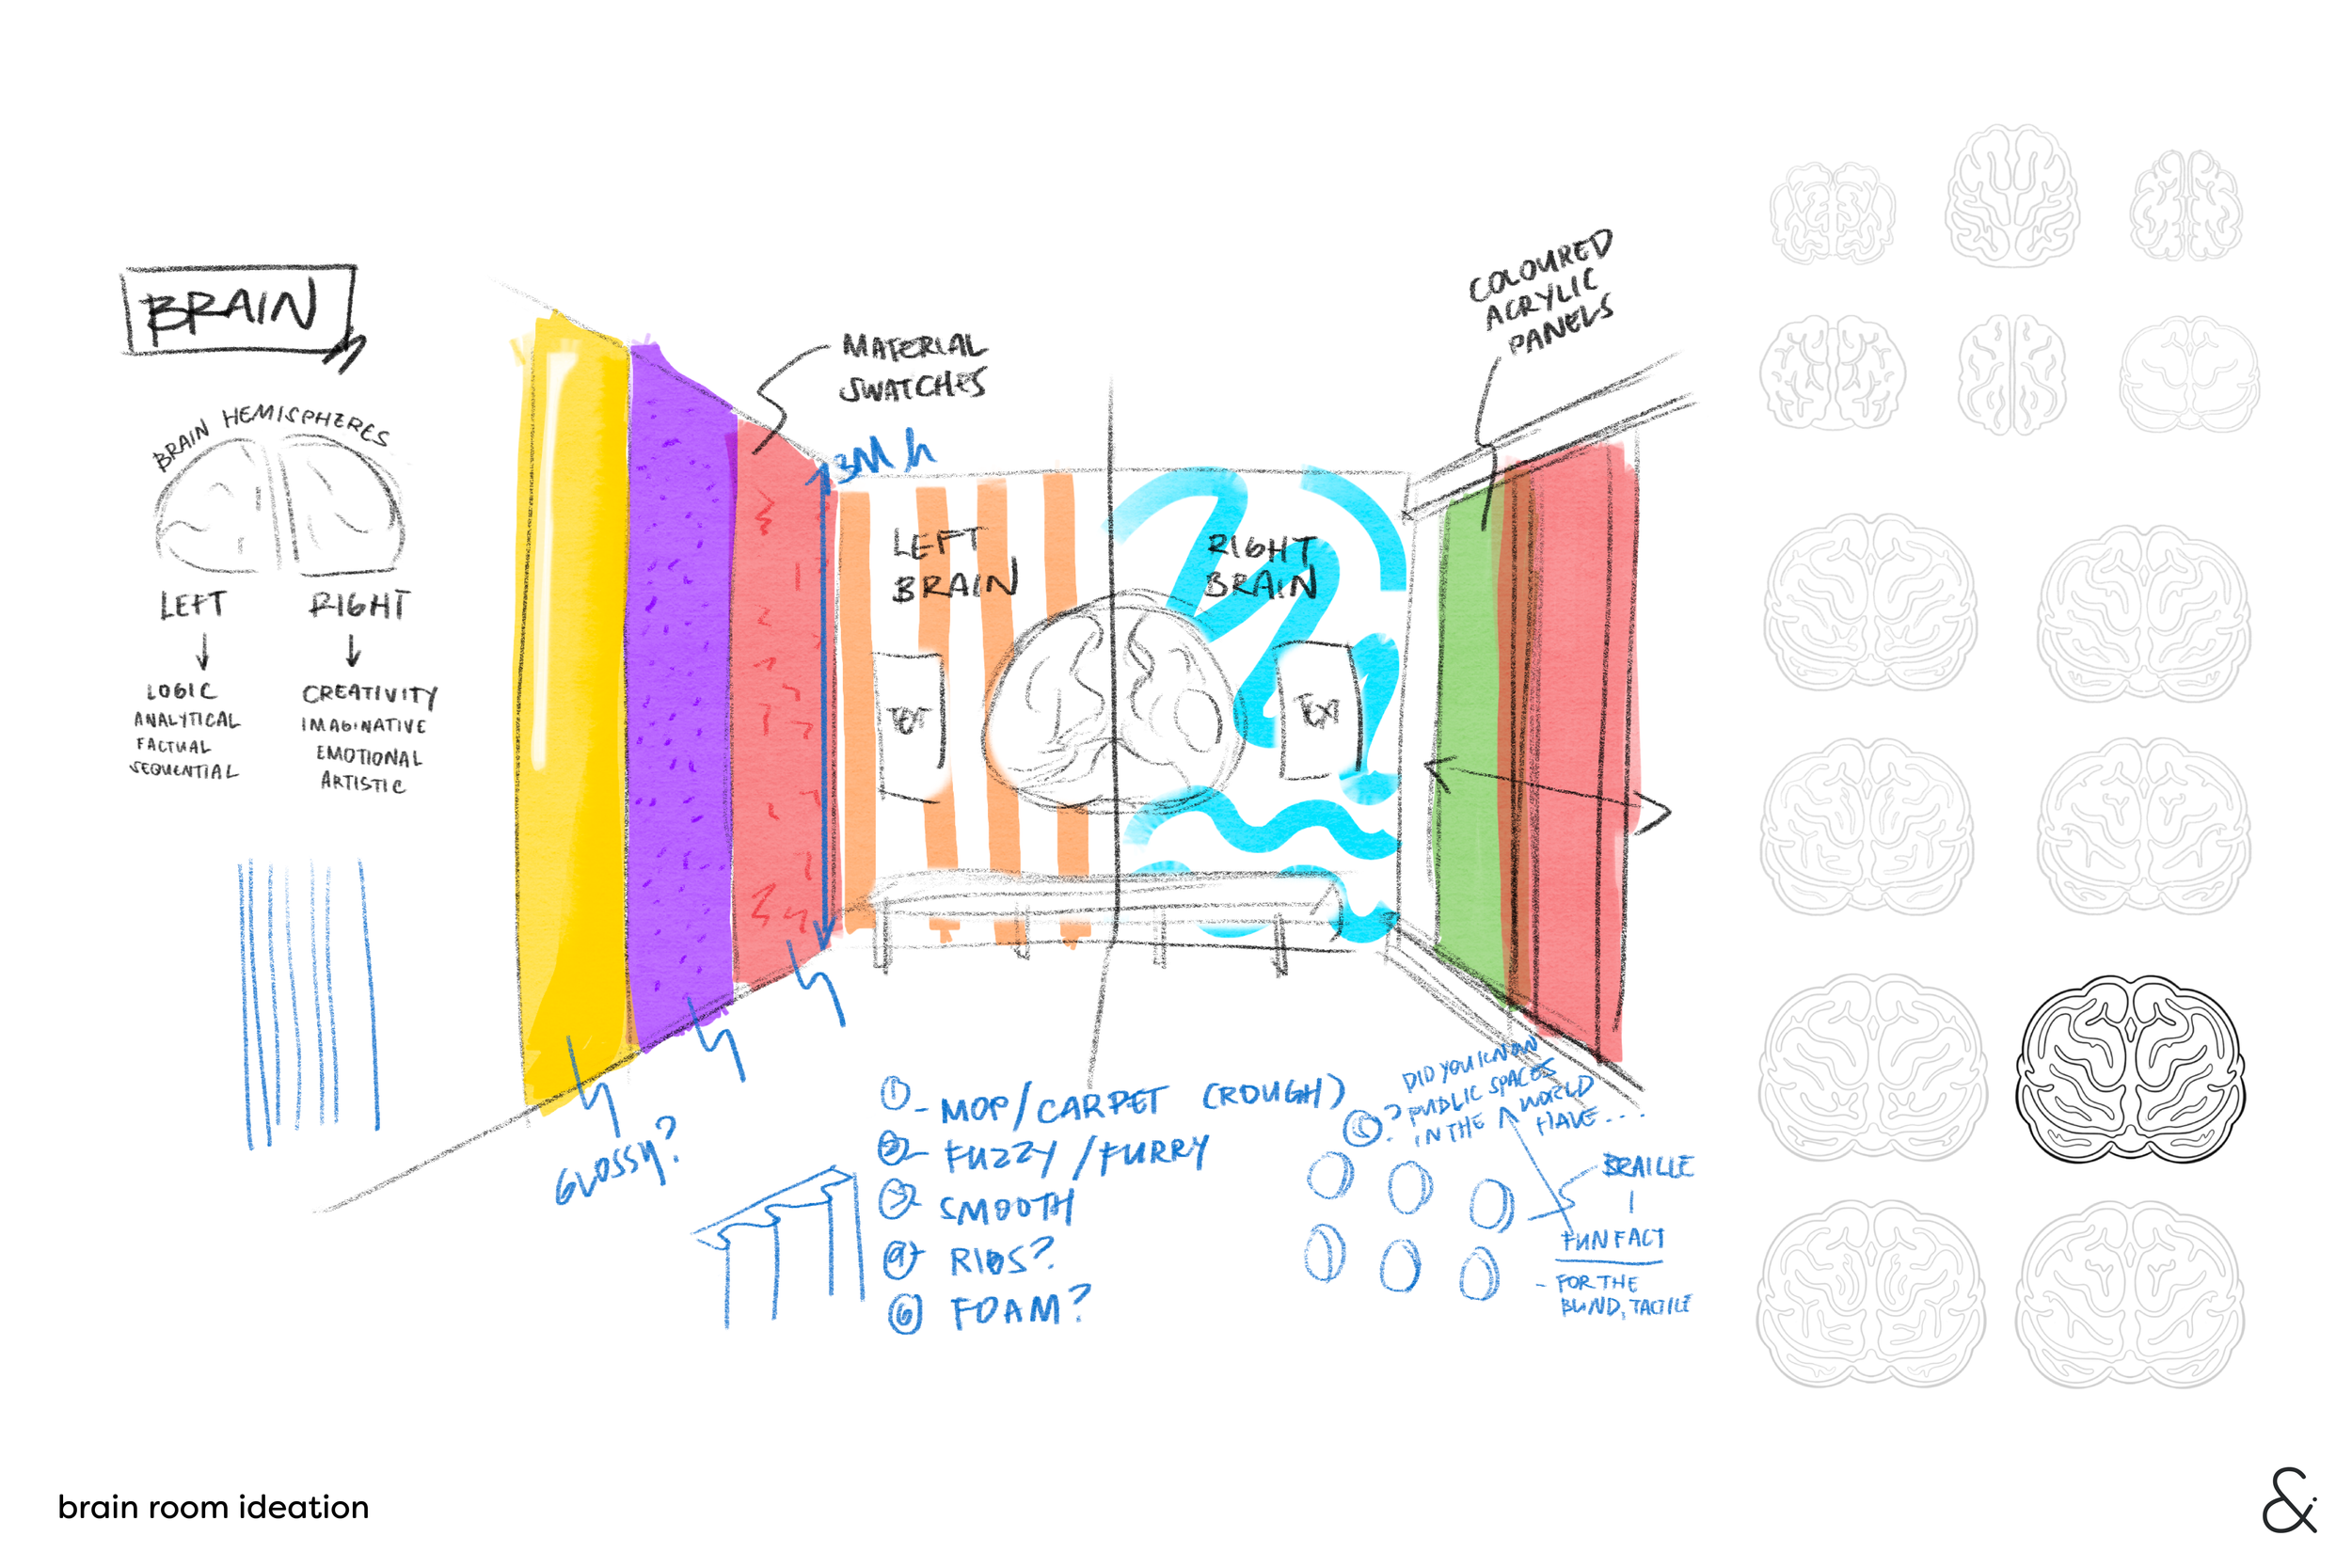 BRAIN
BRAIN HEMISPHERES
LEFT
LOGIC
ANALYTICAL
FACTUAL
SEQUENTIAL
RIGHT
CREATIVITY
IMAGINATIVE
EMOTIONAL
ARTISTIC
MATERIAL
SWATCHES
3M h
LEFT
BRAIN
TEXT
RIGHT
BRAIN
TEXT
COLOURED
ACRYLIC
PANELS
GLOSSY?
1 - MOP/CARPET (ROUGH)
2 - FUZZY/FURRY
3 - SMOOTH
4 - RIBS?
6 FOAM?
?
DID YOU KNOW
PUBLIC SPACES
IN THE WORLD
HAVE....
BRAILLE
FUN FACT
- FOR THE
BLIND, TACTILE
brain room ideation
&